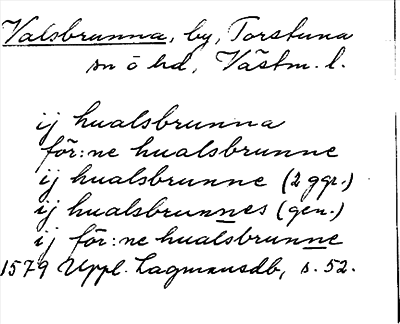 Valsbrunna, by, Torstuna
sn o hd, Västm. l.
ij hualsbrunna
för:ne hualsbrunne
ij hualsbrunne (2 ggr.)
ij hualsbrunnes (gen.)
ij för:ne hualsbrunne
1579 Uppl. Lagmansdb, s. 52.